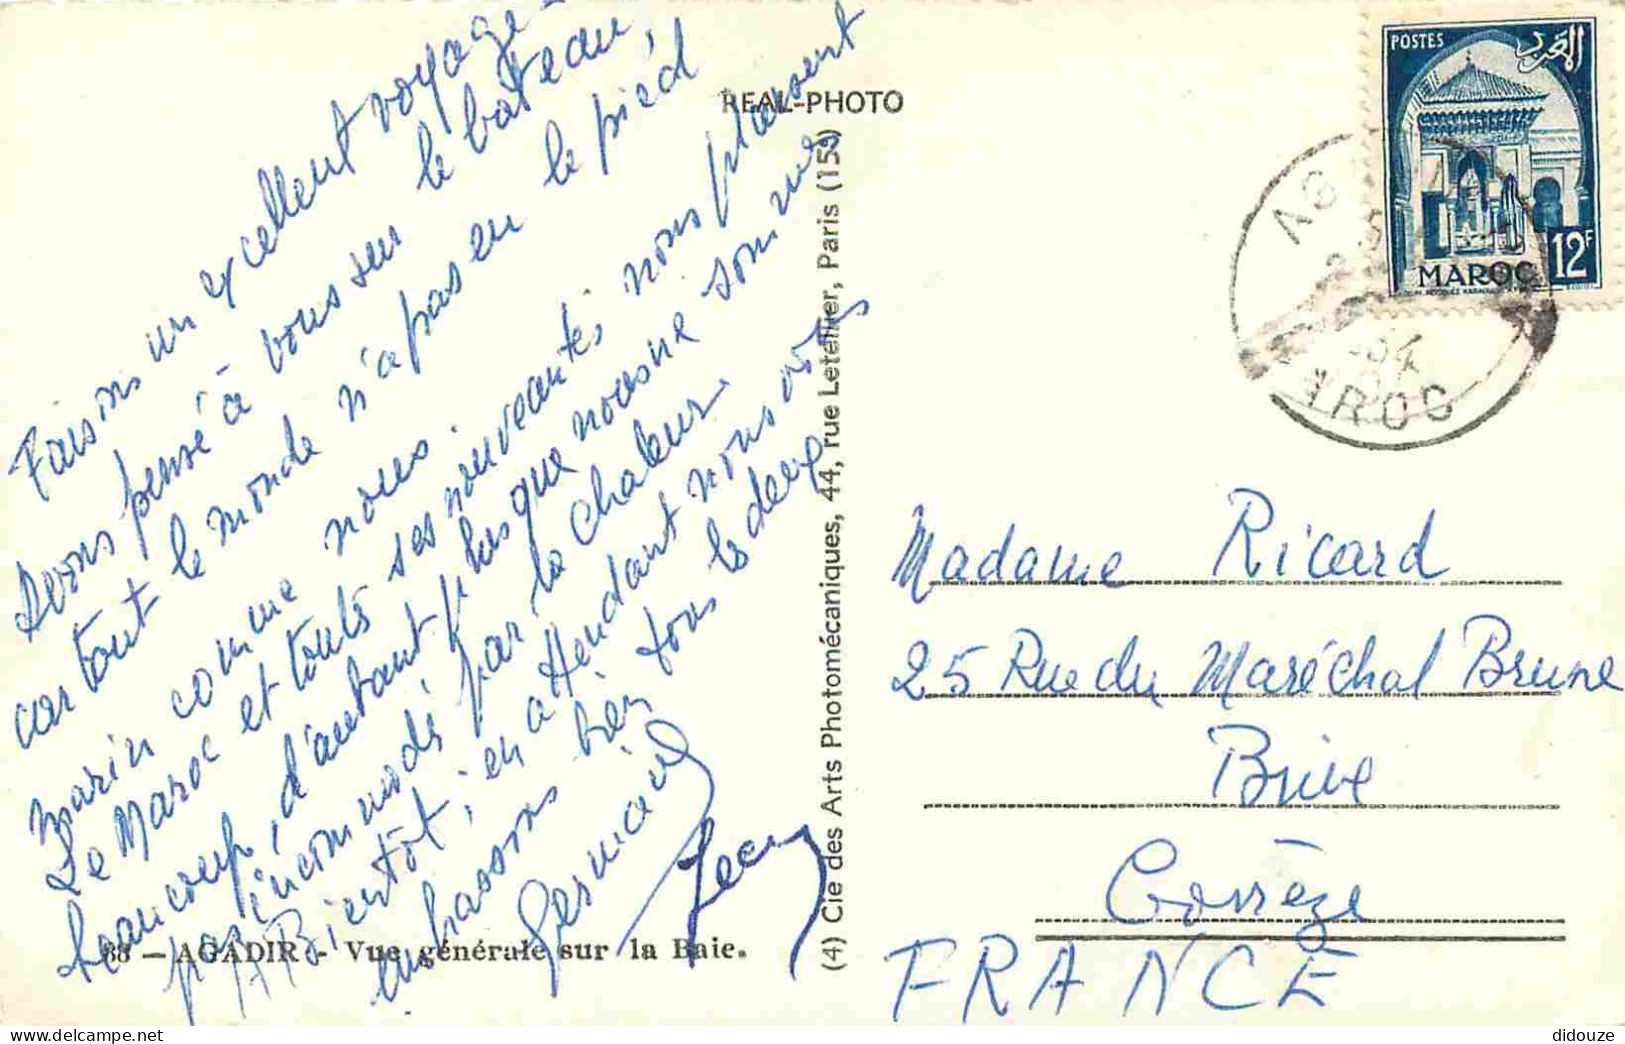 Faisons un excellent voyage
Avons pensé à vous sur le bateau,
car tout le monde n'a pas eu le pied
marin comme nous.
Le Maroc et toute ses nouveautés nous plaisent
beaucoup, d'autant plus que nous ne sommes
pas incommodés par la chaleur
A Bientôt, en attendant nous vous
embrassons bien tous les deux
Germaine
Jean
88 — AGADIR - Vue générale sur la Baie.
REAL-PHOTO
(4) Cie des Arts Photomécaniques, 44, rue Letellier, Paris (15e)
POSTES
المغرب
MAROC
12F
54
MAROC
Madame Ricard
25 Rue du Maréchal Brune
Brive
Corrèze
FRANCE
didouze